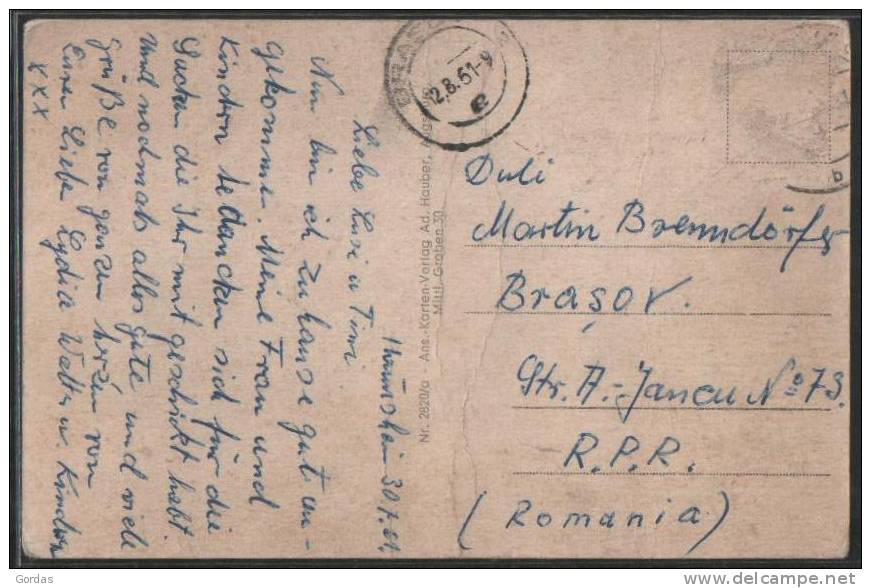 30.7.61.
Liebe Lusi u Timi
Nun bin ich zu hause gut an-
gekommen. Meine Frau und
Kinder bedancken sich für die
Sachen die Ihr mit geschickt habt.
Und nochmals alles gute und viele
Grüße von ganzen herzen von
Eurer Liebe Lydia Walter u. Kinder
XXX
Nr. 2820/a - Ans.-Karten-Verlag Ad. Hauber,
Mittl. Graben 30
12.8.61-9
Duli
Martin Brenndörfer
Braşov.
Str. A.-Jancu No 73.
R.P.R.
(Romania)
Gordas
delcampe.net